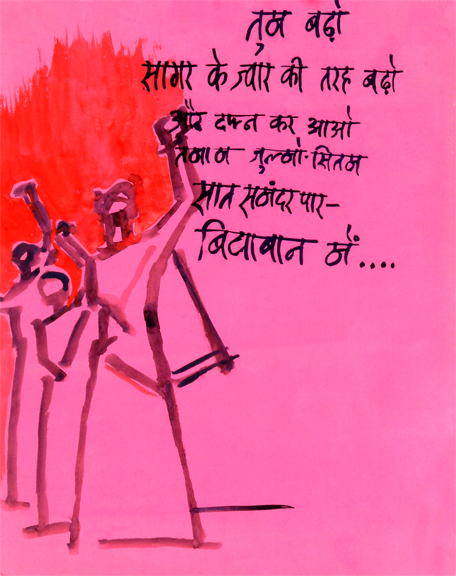 तुम बढ़ो
सागर के ज्वार की तरह बढ़ो
और दफ्न कर आओ
तमाम जुल्मो-सितम
सात समंदर पार–
बियाबान में....